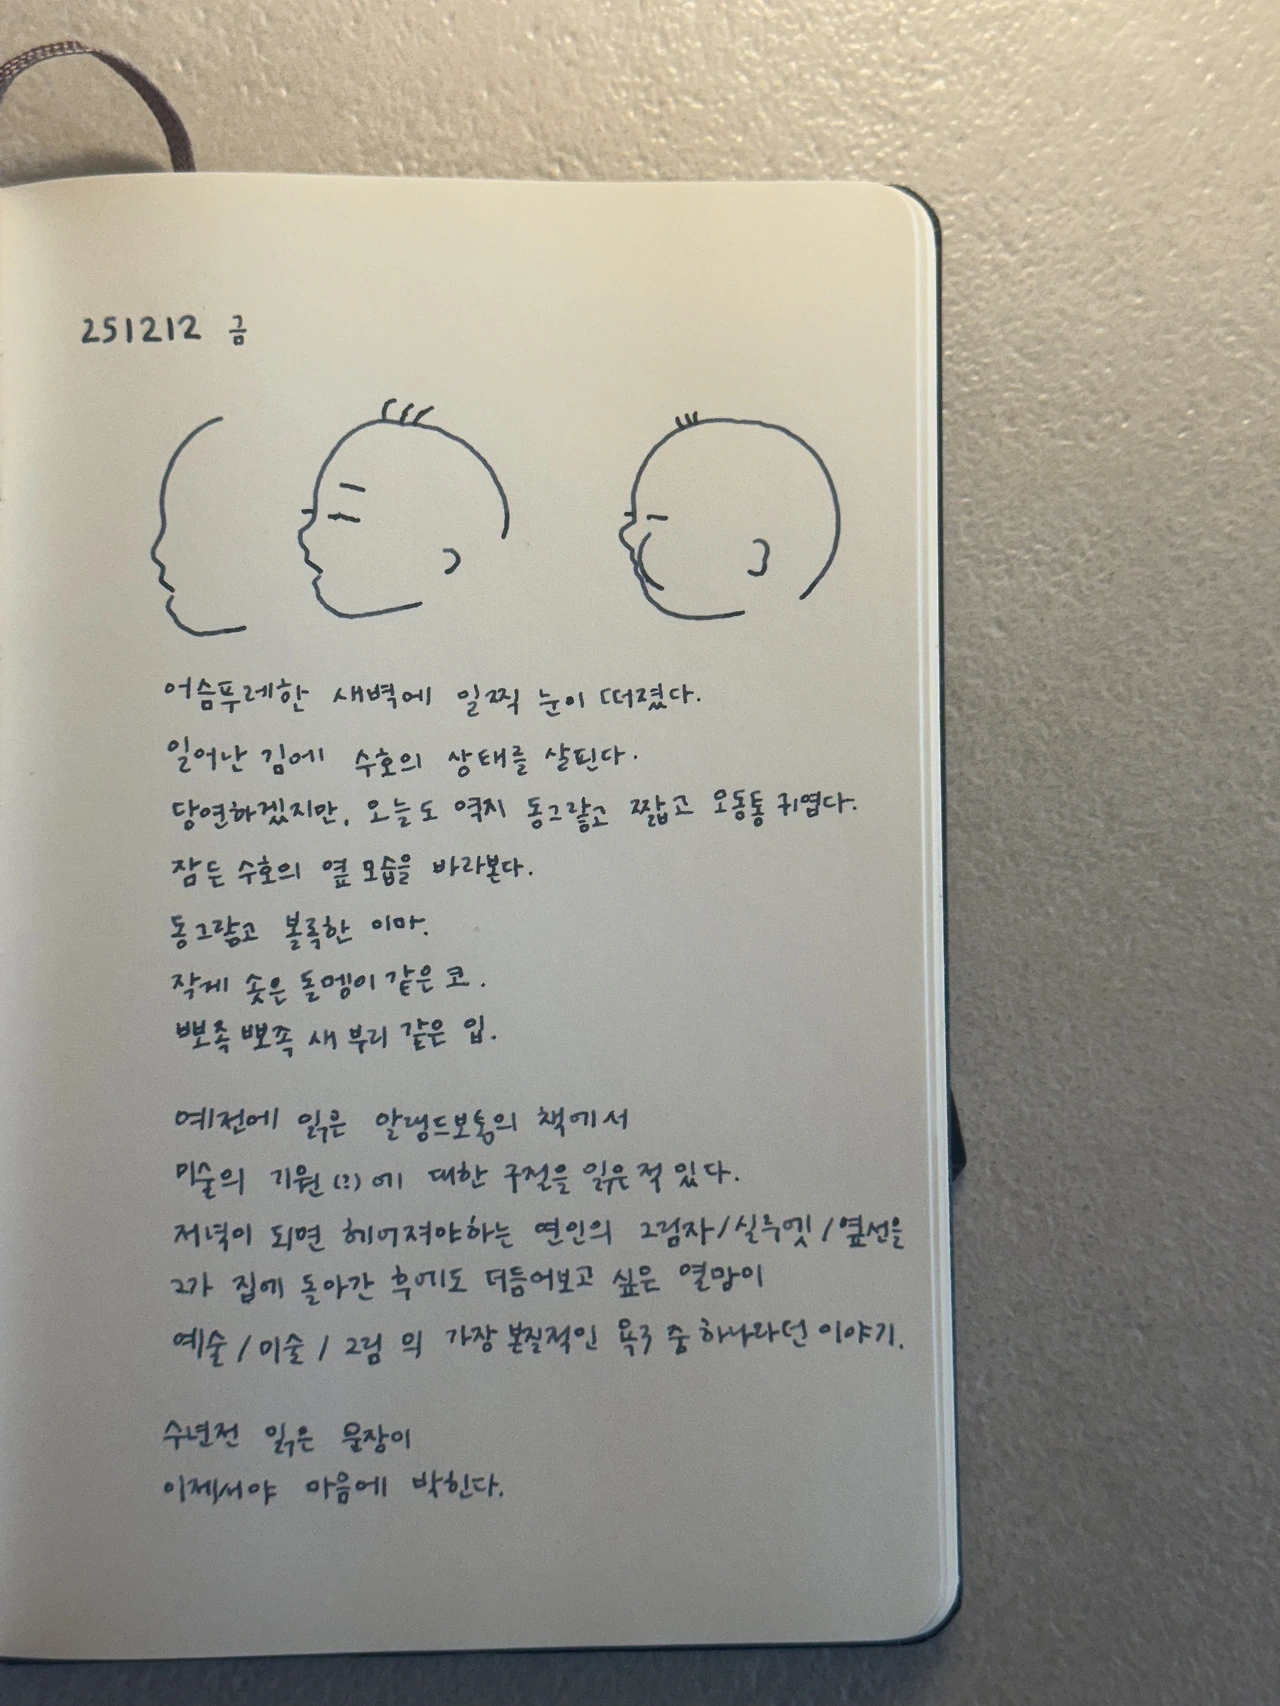 251212 금
어슴푸레한 새벽에 일찍 눈이 떠졌다.
일어난 김에 수호의 상태를 살핀다.
당연하겠지만, 오늘도 역시 동그랗고 짧고 오동통 귀엽다.
잠든 수호의 옆 모습을 바라본다.
동그랗고 볼록한 이마.
작게 솟은 돌멩이 같은 코.
뾰족뾰족 새 부리 같은 입.
예전에 읽은 알랭드보통의 책에서
미술의 기원(?)에 대한 구절을 읽은 적 있다.
저녁이 되면 헤어져야하는 연인의 그림자/실루엣/옆선을
그가 집에 돌아간 후에도 더듬어보고 싶은 열망이
예술/미술/그림의 가장 본질적인 욕구 중 하나라던 이야기.
수년전 읽은 문장이
이제서야 마음에 박힌다.